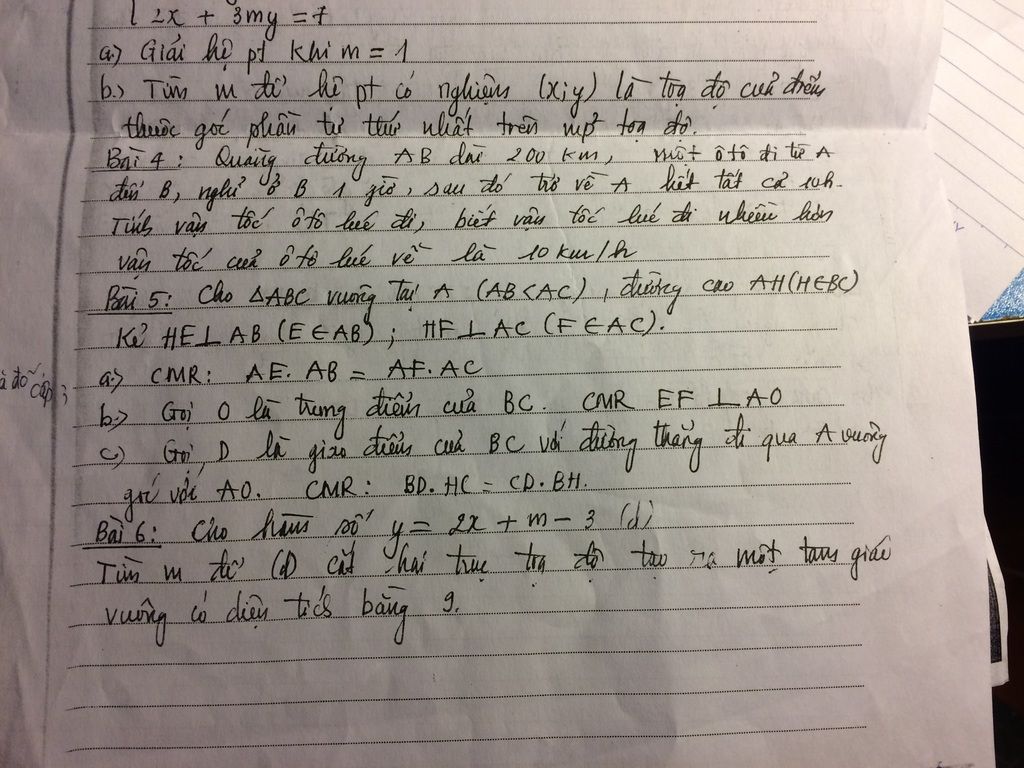 2x + 3my = 7
a.) Giải hệ pt khi m = 1
b.) Tìm m để hệ pt có nghiệm (x;y) là toạ độ của điểm
thuộc góc phần tư thứ nhất trên mp' toạ độ.
Bài 4 : Quãng đường AB dài 200 km, một ô tô đi từ A
đến B, nghỉ ở B 1 giờ, sau đó trở về A hết tất cả 10h.
Tính vận tốc ô tô lúc đi, biết vận tốc lúc đi nhiều hơn
vận tốc của ô tô lúc về là 10 km/h
Bài 5: Cho ΔABC vuông tại A (AB<AC), đường cao AH(H∈BC)
Kẻ HE⊥AB (E∈AB) ; HF⊥AC (F∈AC).
a.) CMR: AE.AB = AF.AC
b.) Gọi O là trung điểm của BC. CMR EF⊥AO
c.) Gọi D là giao điểm của BC với đường thẳng đi qua A vuông
góc với AO. CMR: BD.HC = CD.BH.
Bài 6: Cho hàm số y = 2x + m - 3 (d)
Tìm m để (d) cắt hai trục toạ độ tạo ra một tam giác
vuông có diện tích bằng 9.